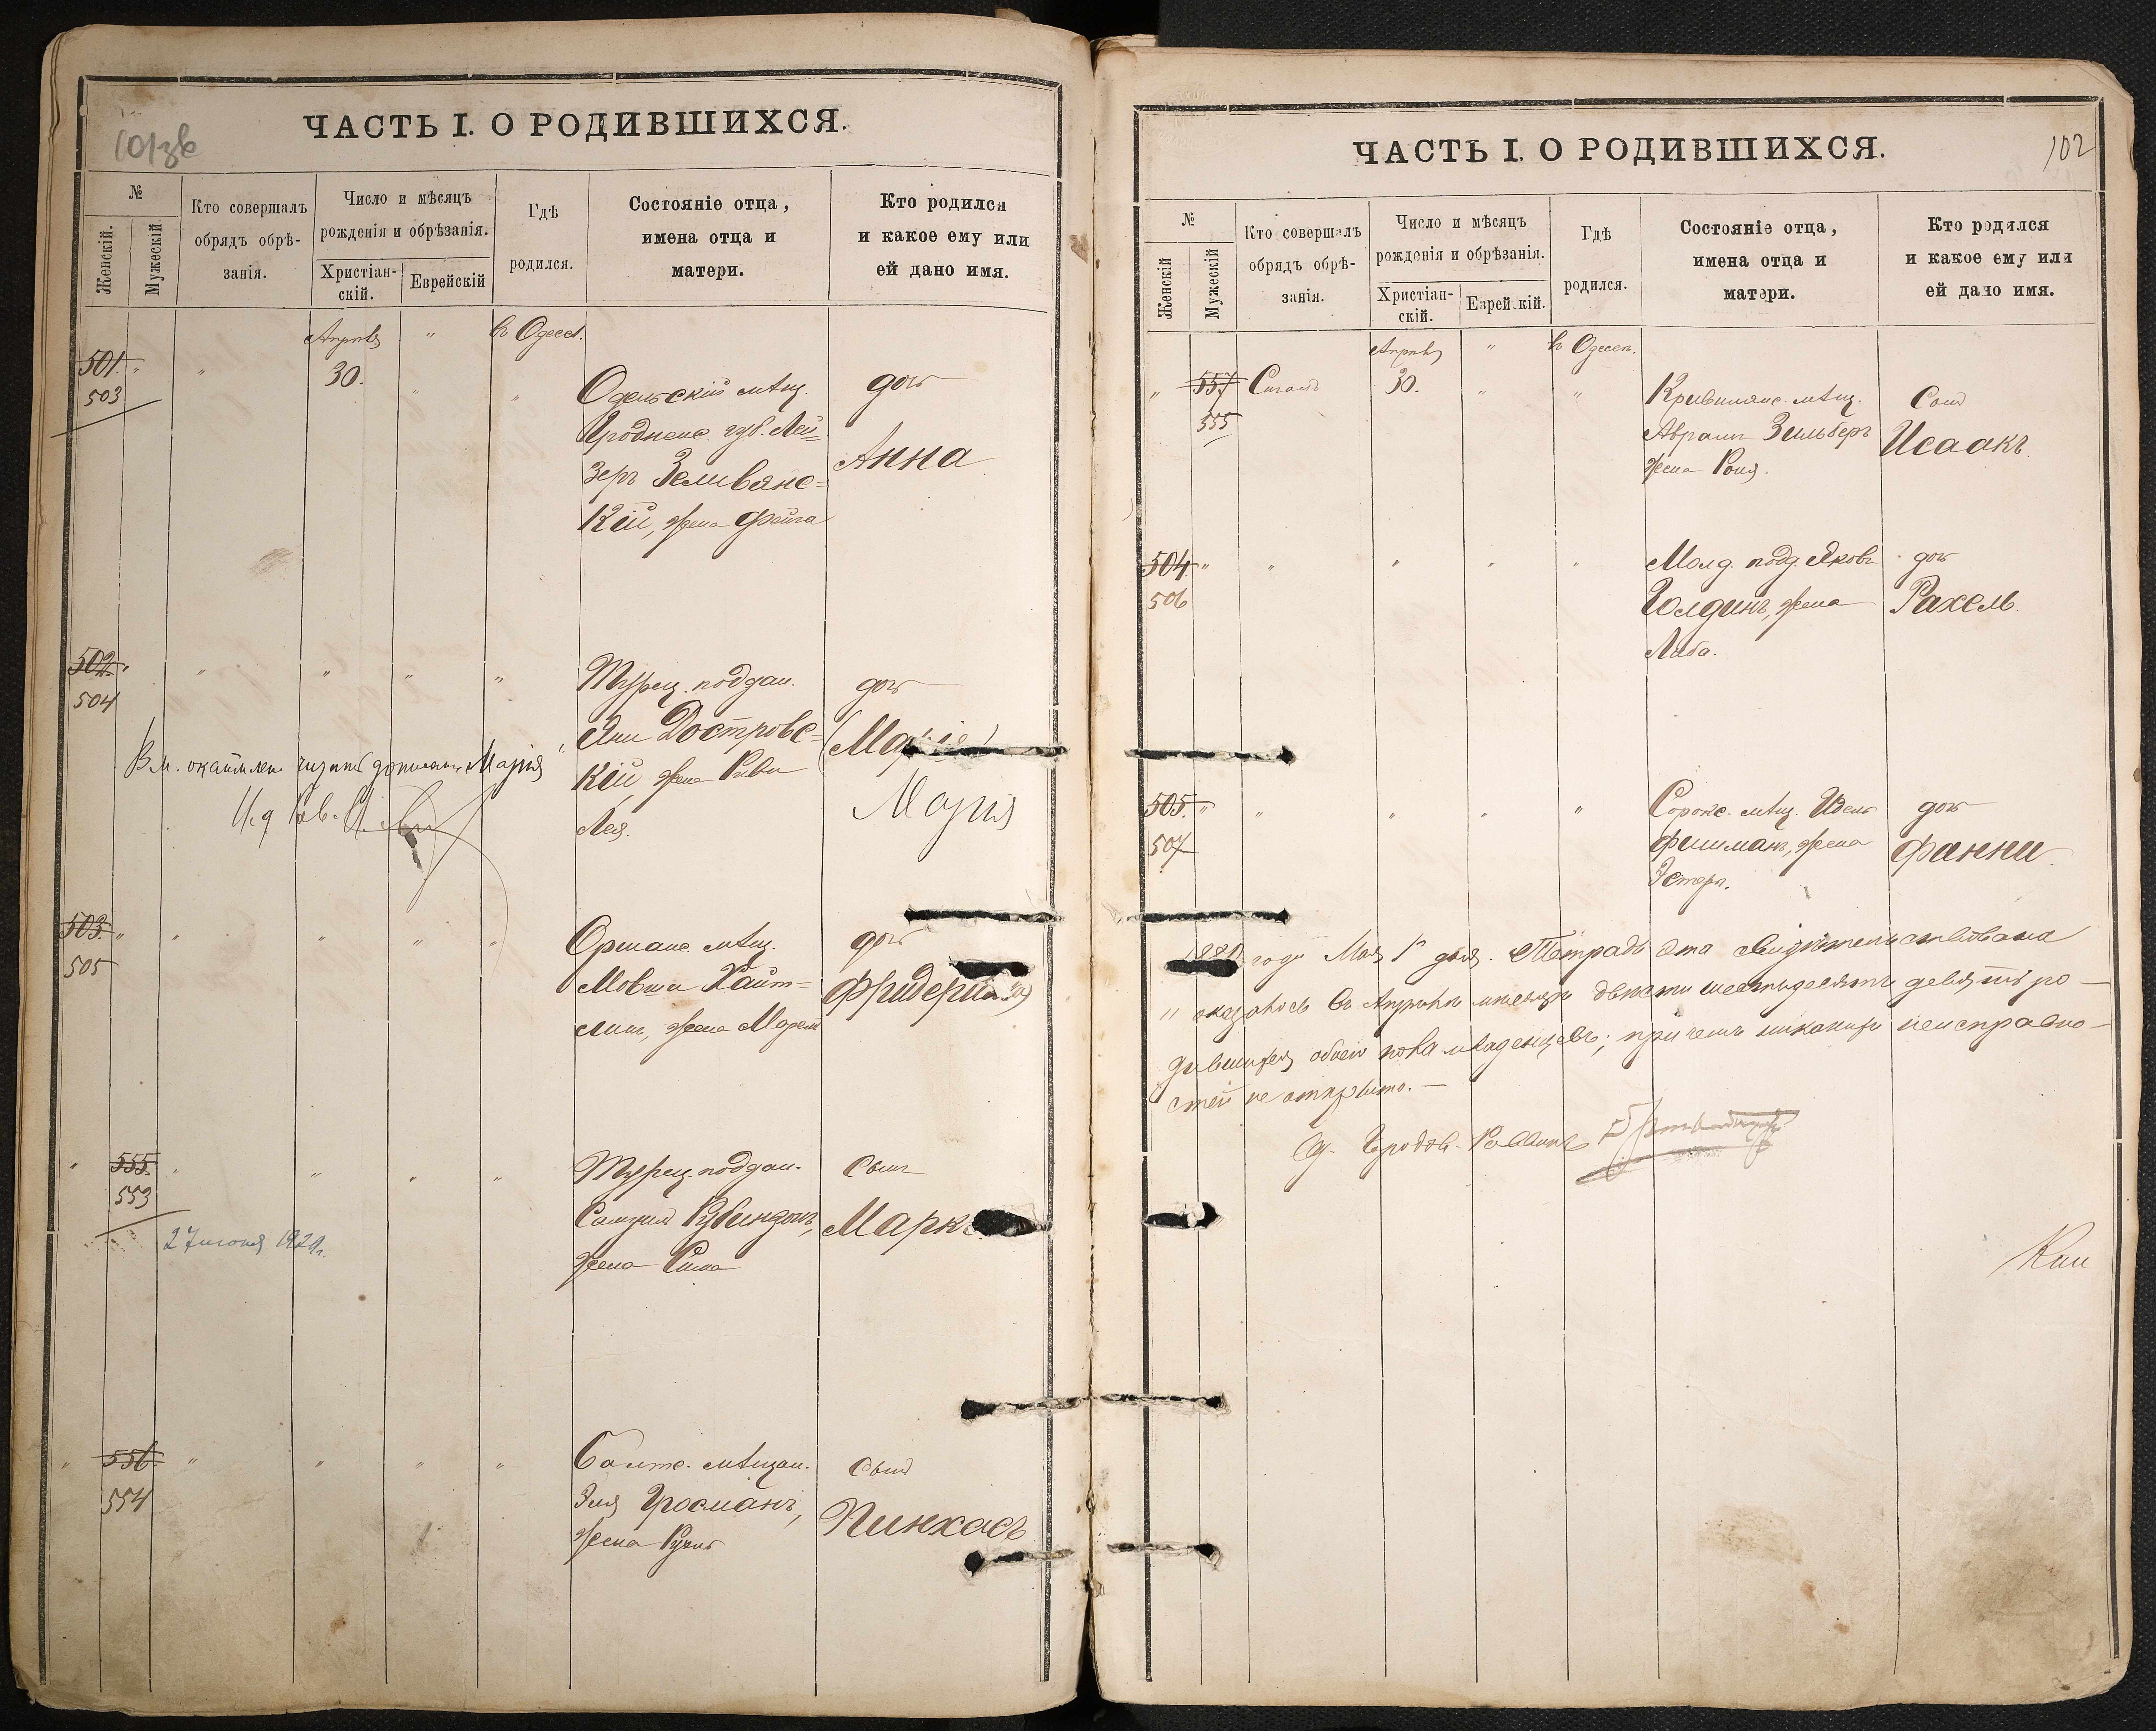 101зв
ЧАСТЬ I. О РОДИВШИХСЯ.
№
Женскій.
Мужескій
Кто совершалъ
обрядъ обрѣ-
занія.
Число и мѣсяцъ
рожденія и обрѣзанія.
Христіан-
скій.
Еврейскій
Гдѣ
родился.
Состояніе отца,
имена отца и
матери.
Кто родился
и какое ему или
ей дано имя.
Апрѣля " въ Одессѣ.
501. " " 30. " "
503
Одельскій мѣщ.
Гродненс. губ. Лей=
зеръ Зеливянс=
кій, жена Фейга
дочь
Анна
502. " " " " "
504
Турец. поддан.
Достровс=
кій, жена Рива
Лея.
дочь
(Марія)
Марія
503. " " " " "
505
Оршанс. мѣщ.
Мовша Хайт=
жена
дочь
Фридерика
" 555. " " " "
553
27 июня 1929г.
Турец. поддан.
Самуил Рубинзонъ,
жена
сынъ
Маркъ.
" 556. " " " "
554
Балтс. мѣщан.
Эля Гросманъ,
жена
сынъ
Пинхасъ
102
ЧАСТЬ I. О РОДИВШИХСЯ.
№
Женскій
Мужескій
Кто совершалъ
обрядъ обрѣ-
занія.
Число и мѣсяцъ
рожденія и обрѣзанія.
Христіан-
скій.
Еврейскій.
Гдѣ
родился.
Состояніе отца,
имена отца и
матери.
Кто родился
и какое ему или
ей дано имя.
Апрѣля " въ Одессѣ.
" 557 30. " "
555
мѣщ.
Абрамъ Зильберъ
жена Роня.
Сынъ
Исаакъ.
504. " " " " "
506
Молд. подд. Яковъ
Голдинъ, жена
Либа.
дочь
Рахель.
505. " " " " "
507
Сорокс. мѣщ. Идель
Фишманъ, жена
Эстеръ.
дочь
Фанни
1881 года Мая 1 дня. Тетрадь эта свидѣтельствована
и оказалось въ Апрѣлѣ мѣсяцѣ двѣсти шестьдесятъ девять ро-
дившихся обоего пола младенцевъ; при чемъ никакихъ неисправно-
стей не открыто. —
Городов. Раввинъ